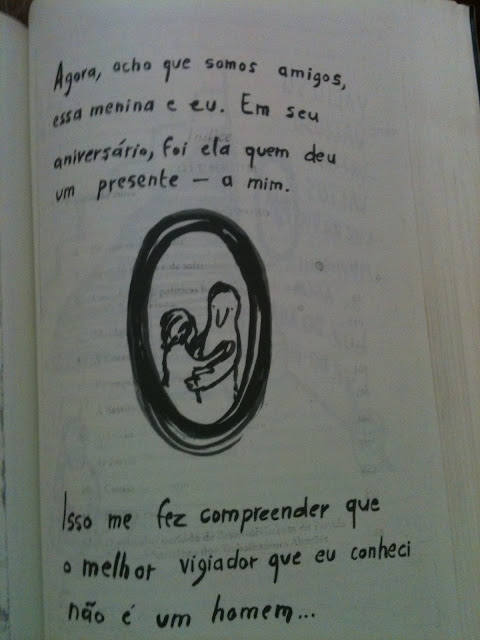 Agora, acho que somos amigos,
essa menina e eu. Em seu
aniversário, foi ela quem deu
um presente — a mim.
Isso me fez compreender que
o melhor vigiador que eu conheci
não é um homem...